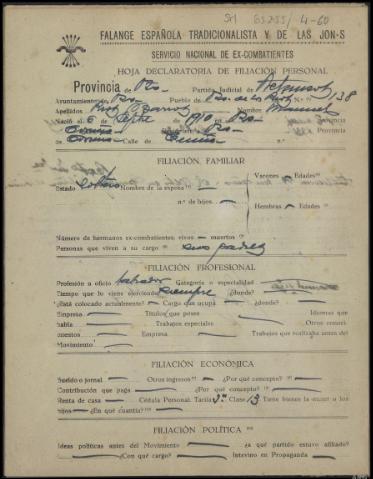 FALANGE ESPAÑOLA TRADICIONALISTA Y DE LAS JON-S
SERVICIO NACIONAL DE EX-COMBATIENTES
HOJA DECLARATORIA DE FILIACIÓN PERSONAL
Provincia de Partida Judicial de
Ayuntamiento de Pueblo de
Apellidos Nombre Manuel
Nació el 6 de Sepbre de 1910 en
Provincia
Coruña Calle de
FILIACIÓN, FAMILIAR
Varones Edades
Estado soltero Nombre de la esposa
n.º de hijos
Hembras Edades
Número de hermanos ex-combatientes, vivos muertos
Personas que viven a su cargo sus padres
FILIACIÓN PROFESIONAL
Profesión u oficio labrador Categoría o especialidad
Tiempo que lo viene ejerciendo siempre ¿dónde?
¿Está colocado actualmente? Cargo que ocupa ¿dónde?
Empresa Títulos que posee Idiomas que
habla Trabajos especiales Otros conoci-
mientos Empresa Trabajos que realizaba antes del
Movimiento
FILIACIÓN ECONÓMICA
Sueldo o jornal Otros ingresos ¿Por qué concepto?
Contribución que paga ¿Por qué concepto?
Renta de casa Cédula Personal. Tarifa 3ª Clase 13 Tiene bienes la mujer o los
hijos ¿En qué cuantía?
FILIACIÓN POLÍTICA
Ideas políticas antes del Movimiento ¿a qué partido estuvo afiliado?
¿Con qué cargo? Intervino en Propaganda